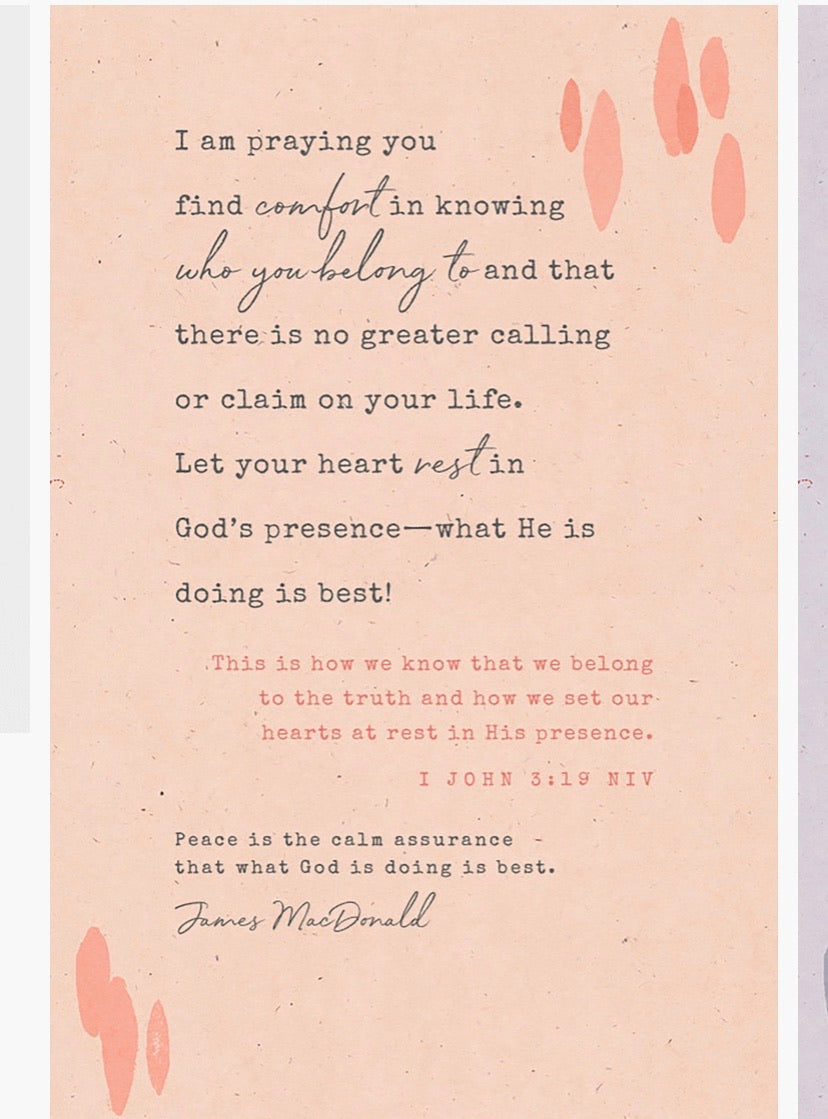 I am praying you
find comfort in knowing
who you belong to and that
there is no greater calling
or claim on your life.
Let your heart rest in
God's presence—what He is
doing is best!
This is how we know that we belong
to the truth and how we set our
hearts at rest in His presence.
I JOHN 3:19 NIV
Peace is the calm assurance
that what God is doing is best.
James MacDonald